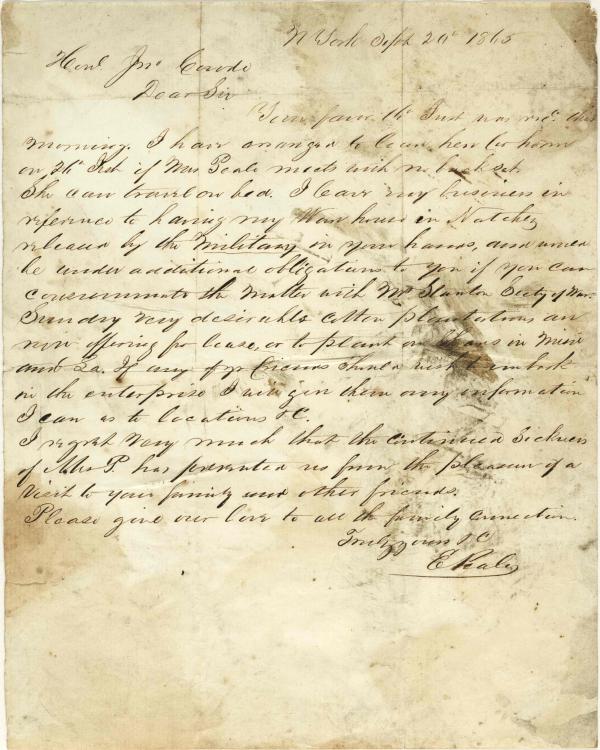 N York Sept 20th 1865
Honl Jno Covode
Dear Sir
Your favor 14th Inst was recd. this
morning. I have arranged to leave here for home
on 26th Inst if Mrs Peale meets with no back set.
She can travel on bed. I leave my business in
reference to having my Ware house in Natchez
released by the Military in your hands, and would
be under additional obligations to you if you can
the Matter with Mr Stanton Secty of War.
Sundry very desirable cotton plantations are
now offering for lease, or to plant on shares in Missi
and La. If any of yr friends should wish to embark
in the enterprise I will give them any information
I can as to locations &C.
I regret very much that the continued Sickness
of Mrs P. has prevented us from the pleasure of a
Visit to your family and other friends.
Please give our love to all the family connection.
Truly yours &C
E Peale